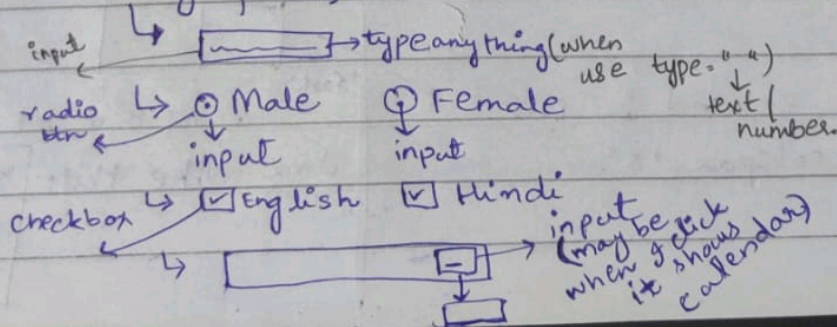 input
type anything (when
use type = " ")
text /
number.
radio
btn
Male
Female
input
input
checkbox
English
Hindi
input
(may be
when I click
it shows
calendar)